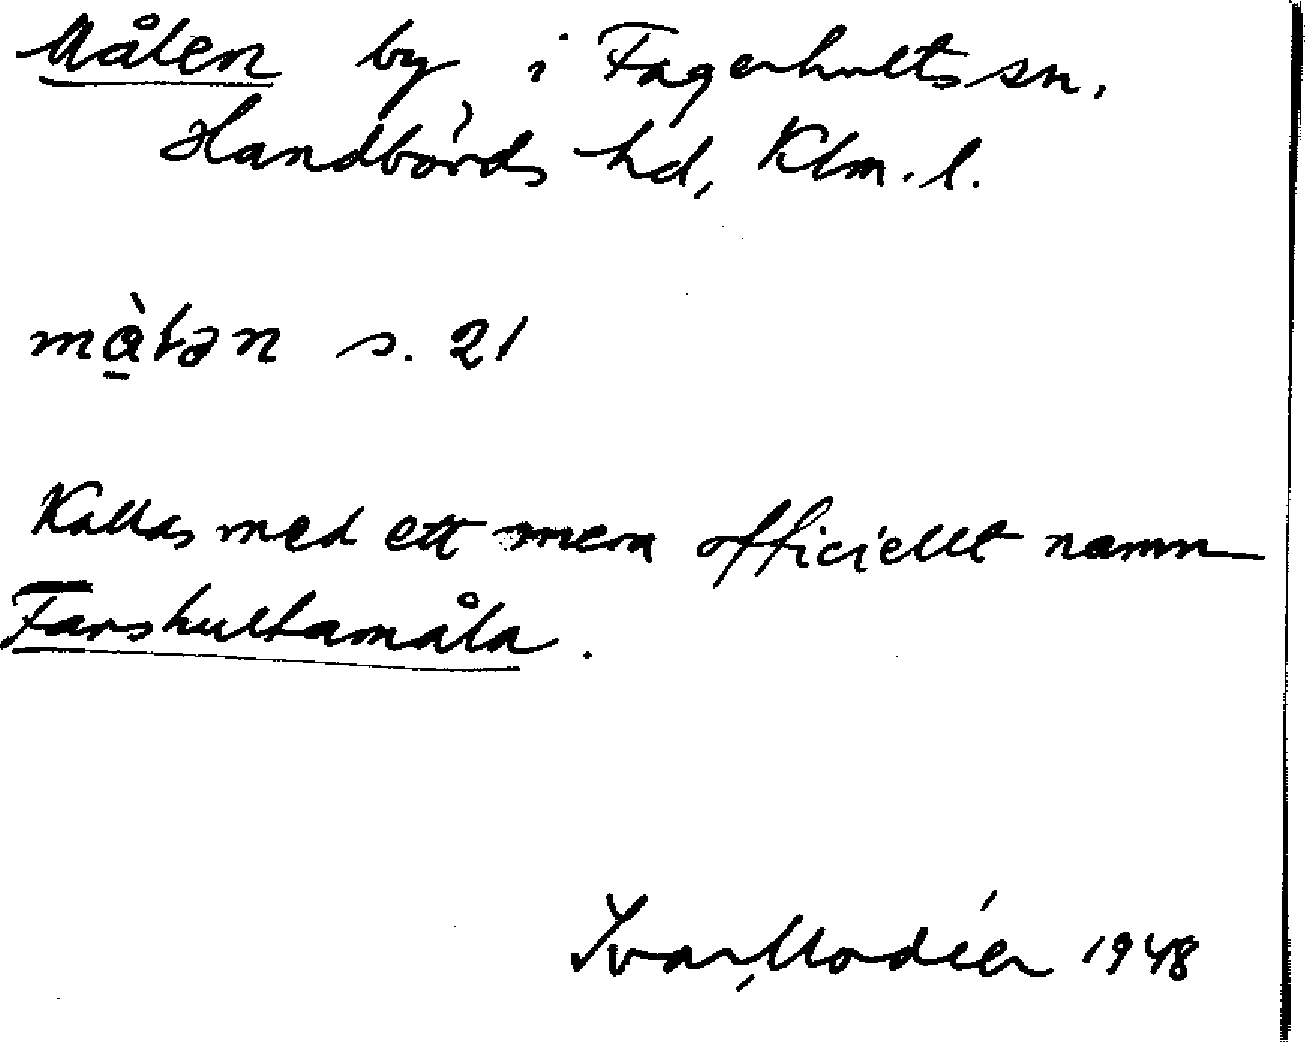 Målen by i Fagerhults sn.
Handbörds hd, Klm. l.
må̀lən s. 21
Kallas med ett mera officiellt namn
Farshultamåla.
Ivar Modéer 1948